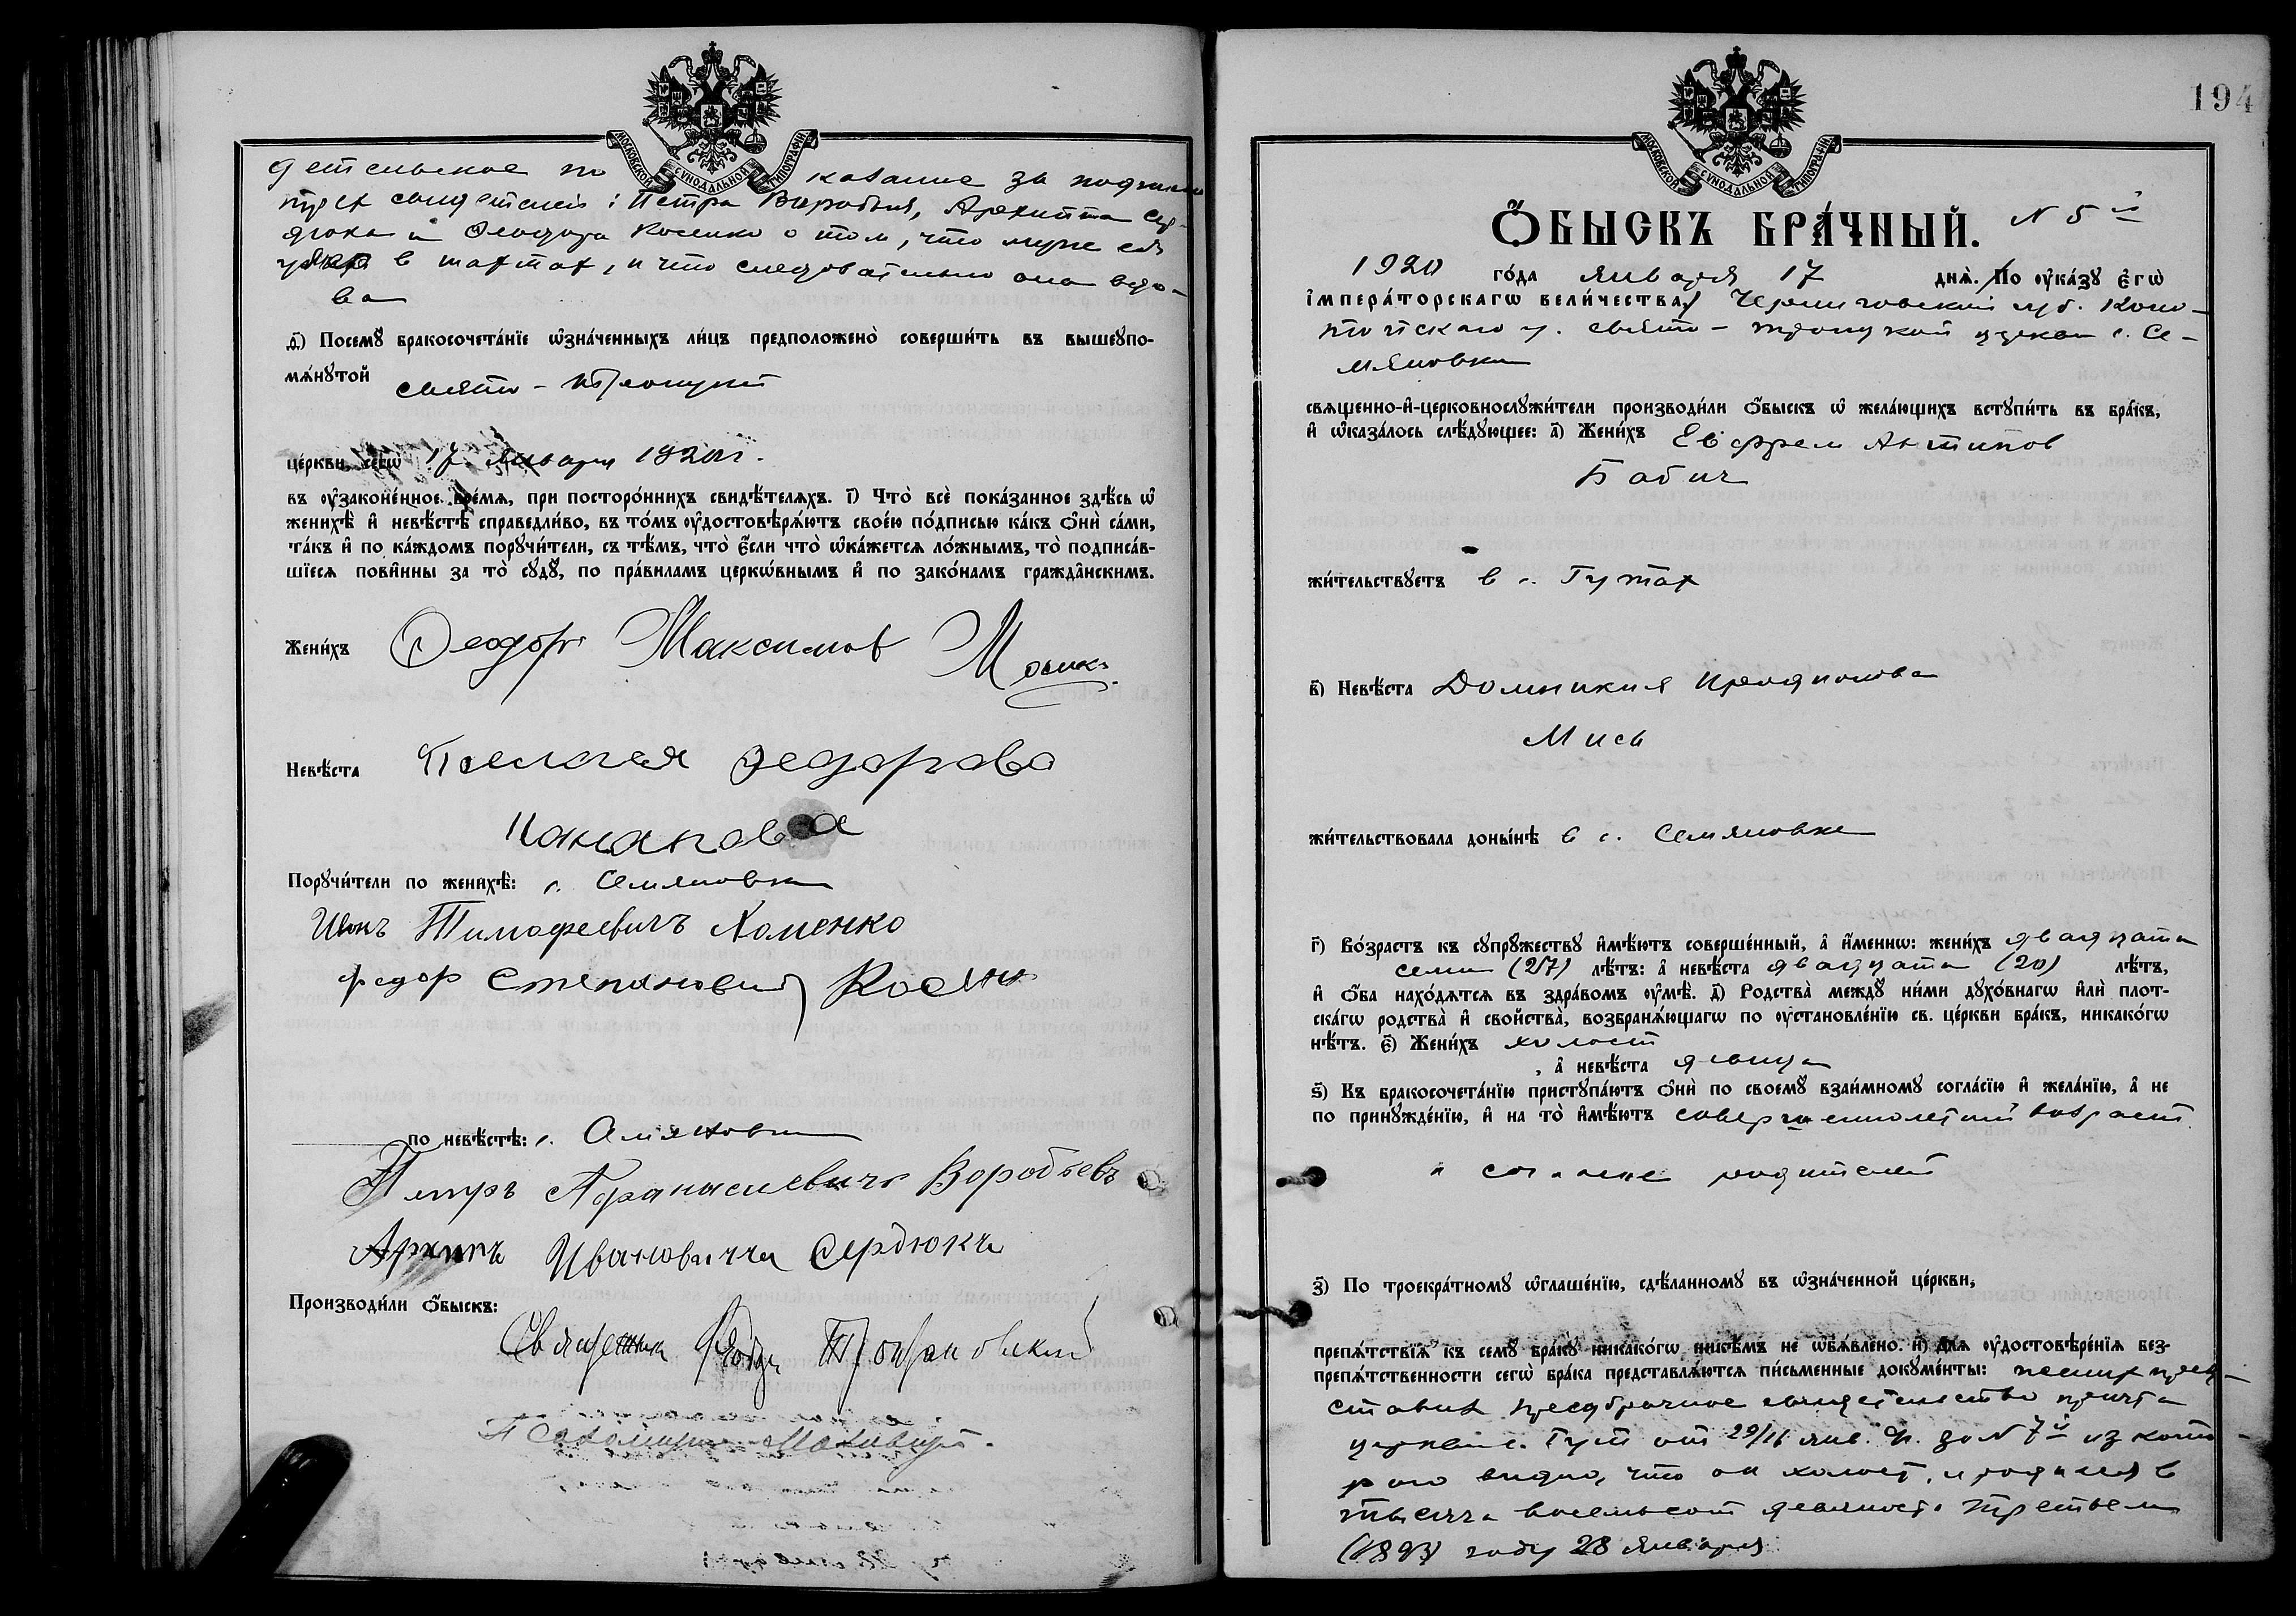 МОСКОВСКОЙ СѴНОДАЛЬНОЙ ТИПОГРАФІИ
показание за подписью
свидетелей: Петра Воробья, Архиппа Сер-
дюка и Феодора Косенко о том, что муж ея
в шахтах, и что следовательно она вдо-
ва
д҃) Посемꙋ̀ бракосочета́нїе ѡ҆зна́ченныхъ ли́цъ предположено̀ соверши́ть въ вышеꙋпо-
мѧ́нꙋтой свято-Троицкой
це́ркви, сегѡ̀ 17 января 1920 г.
въ ᲂу҆зако́ненное вре́мѧ, при посторо́ннихъ свидѣ́телѧхъ. і҃) Что̀ всѐ пока́занное здѣ́сь ѡ҆
женихѣ̀ и҆ невѣ́стѣ справедли́во, въ то́мъ ᲂу҆достовѣрѧ́ютъ свое́ю по́дписью ка́къ ѻ҆нѝ са́ми,
та́къ и҆ по ка́ждомъ порꙋчи́тели, съ тѣ́мъ, что̀ є҆́сли что̀ ѡ҆ка́жетсѧ ло́жнымъ, то̀ подписа́в-
шїесѧ пови́нны за то̀ сꙋдꙋ̀, по пра́виламъ церкѡ́внымъ и҆ по зако́намъ гражда́нскимъ.
Жени́хъ Феодоръ Максимов
Невѣ́ста Пелагея Федорова
Порꙋчи́тели по женихѣ̀: с. Семяновки
Тимофеевичъ Хоменко
Федор Степанович
по невѣ́стѣ: с. Семяновки
Петръ Афанасиевичъ Воробьевъ
Архипъ Ивановичъ Сердюкъ
Производи́ли ѻ҆́быскъ:
Священник
Псаломщик
194
МОСКОВСКОЙ СѴНОДАЛЬНОЙ ТИПОГРАФІИ
Ѻ҆́БЫСКЪ БРА́ЧНЫЙ. N 5й
1920 го́да января 17 днѧ̀. По ᲂу҆ка́зꙋ є҆гѡ̀
і҆мпера́торскагѡ вели́чества, Черниговской губ. Коно-
топскаго у. свято-троицкой церкви с. Се-
мяновки
свѧще́нно-и҆-церковнослꙋжи́тели производи́ли ѻ҆́быскъ ѡ҆ жела́ющихъ встꙋпи́ть въ бра́къ,
и҆ ѡ҆каза́лось слѣ́дꙋющее: а҃) Жени́хъ Евфрем Антипов
Бабич
жи́тельствꙋетъ в с. Гутах
в҃) Невѣ́ста Домникия
Мись
жи́тельствовала доны́нѣ в с. Семяновке
г҃) Во́зрастъ къ сꙋпрꙋ́жествꙋ и҆мѣ́ютъ соверше́нный, а҆ и҆́меннѡ: жени́хъ двадцати
семи (27) лѣ́тъ: а҆ невѣ́ста двадцати (20) лѣ́тъ,
и҆ ѻ҆́ба нахо́дѧтсѧ въ здра́вомъ ᲂу҆мѣ̀. д҃) Родства̀ междꙋ̀ ни́ми дꙋхо́внагѡ и҆лѝ плот-
ска́гѡ родства̀ и҆ сво́йства, возбранѧ́ющагѡ по ᲂу҆становле́нїю св. це́ркви бра́къ, никако́гѡ
нѣ́тъ. є҃) Жени́хъ холост
, а҆ невѣ́ста девица
ѕ҃) Къ бракосочета́нїю пристꙋпа́ютъ ѻ҆нѝ по своемꙋ̀ взаи́мномꙋ согла́сїю и҆ жела́нїю, а҆ не
по принꙋжде́нїю, и҆ на то̀ и҆мѣ́ютъ совершеннолетний возраст
и согласие родителей
з҃) По троекра́тномꙋ ѡ҆глаше́нїю, сдѣ́ланномꙋ въ ѡ҆зна́ченной це́ркви,
препѧ́тствїѧ къ семꙋ̀ бра́кꙋ никако́гѡ никѣ́мъ не ѡ҆б̾ѧ́влено. и҃) Длѧ̀ ᲂу҆достовѣре́нїѧ без-
препѧ́тственности сегѡ̀ бра́ка представлѧ́ютсѧ пи́сьменные докꙋме́нты: жених пред-
ставил предбрачное свидетельство причта
церкви с. Гут от 29/16 янв. за N 7й из кото-
раго видно, что он холост, и родился в
тысяча восемьсот девяносто третьем
(1893) году 28 января